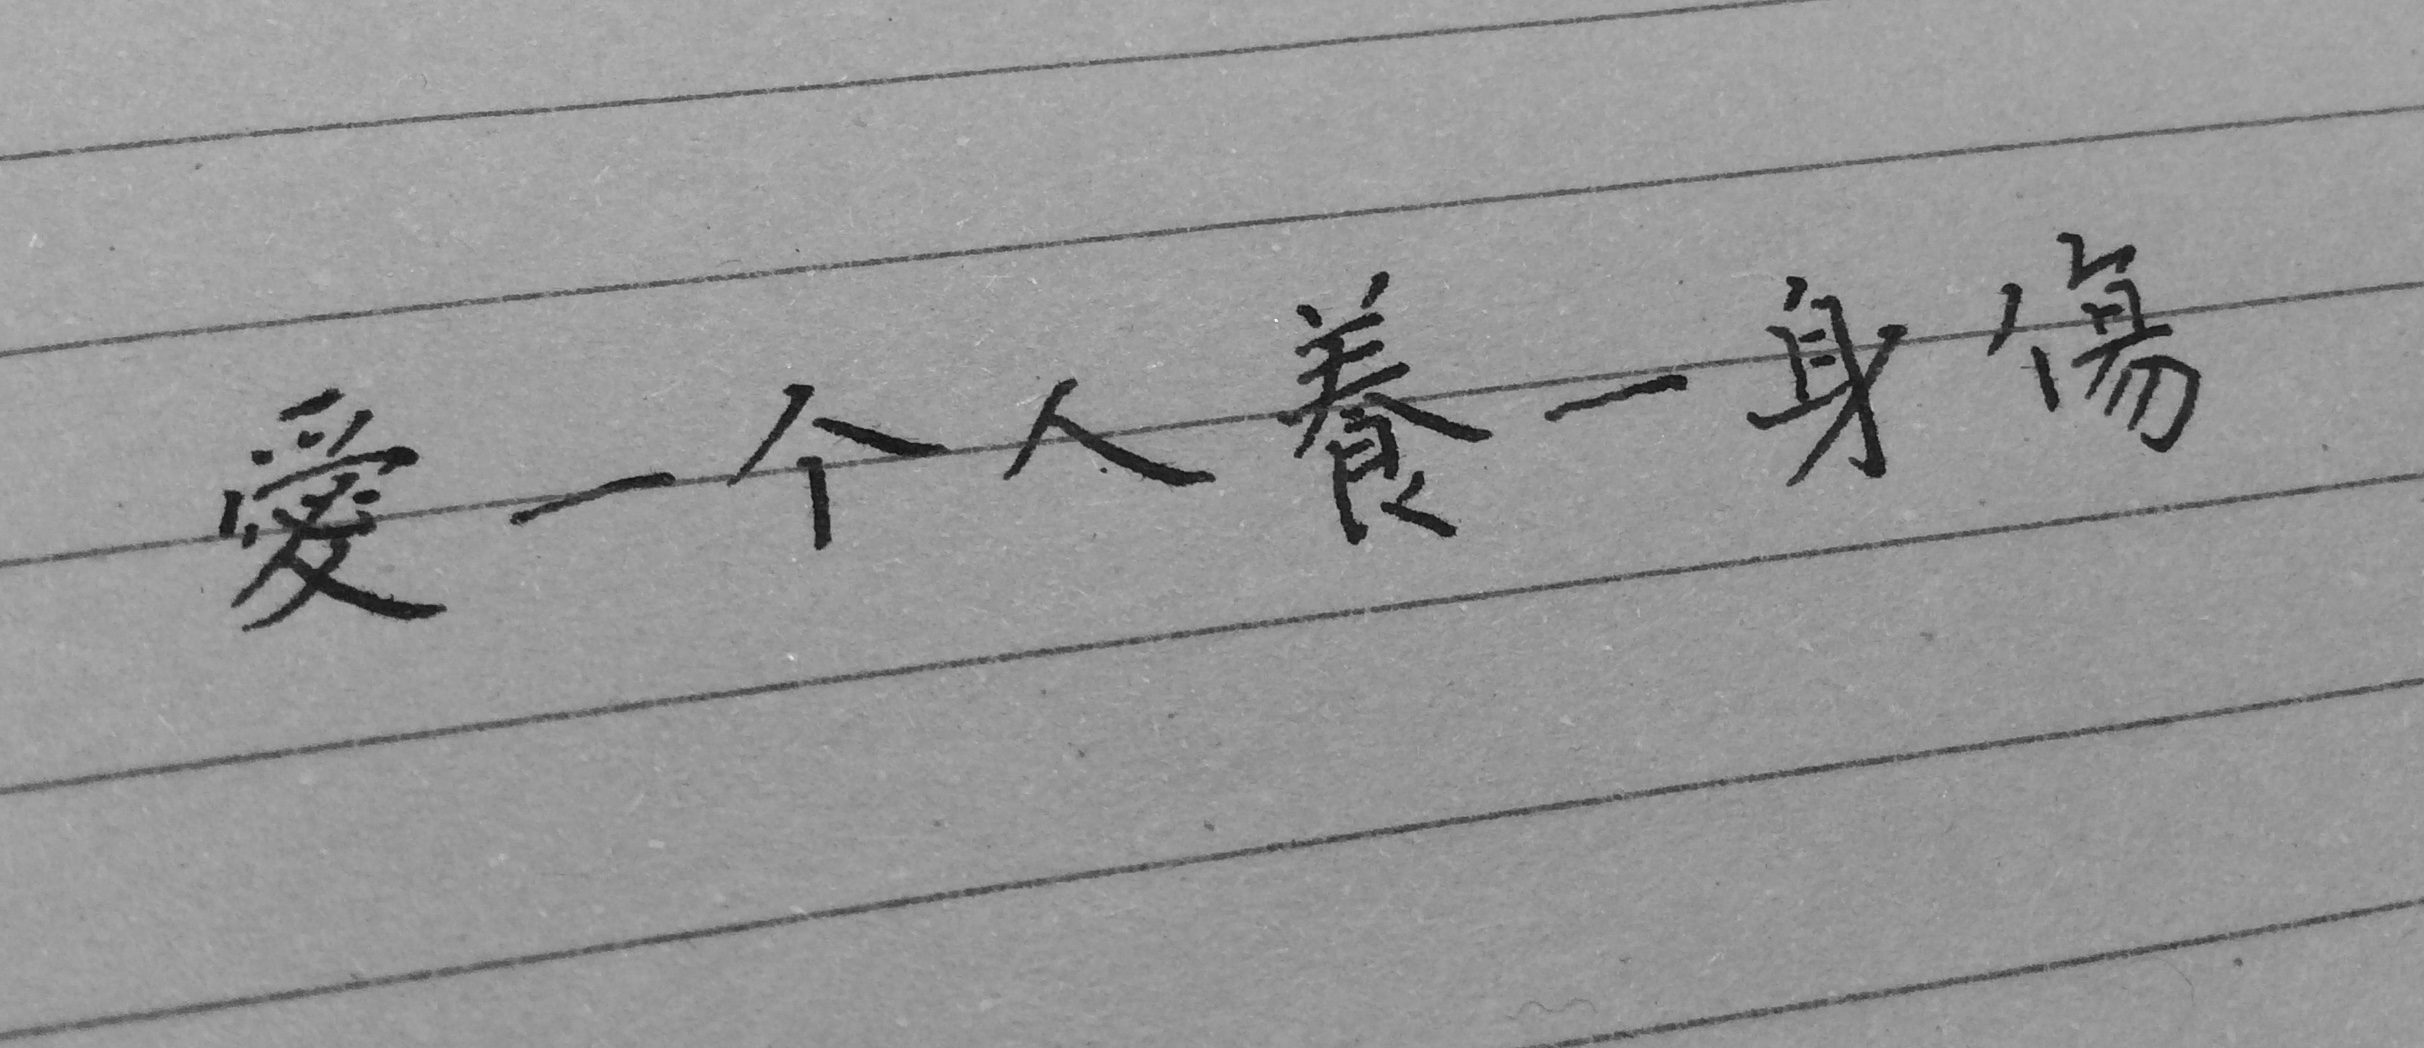 愛一个人養一身傷